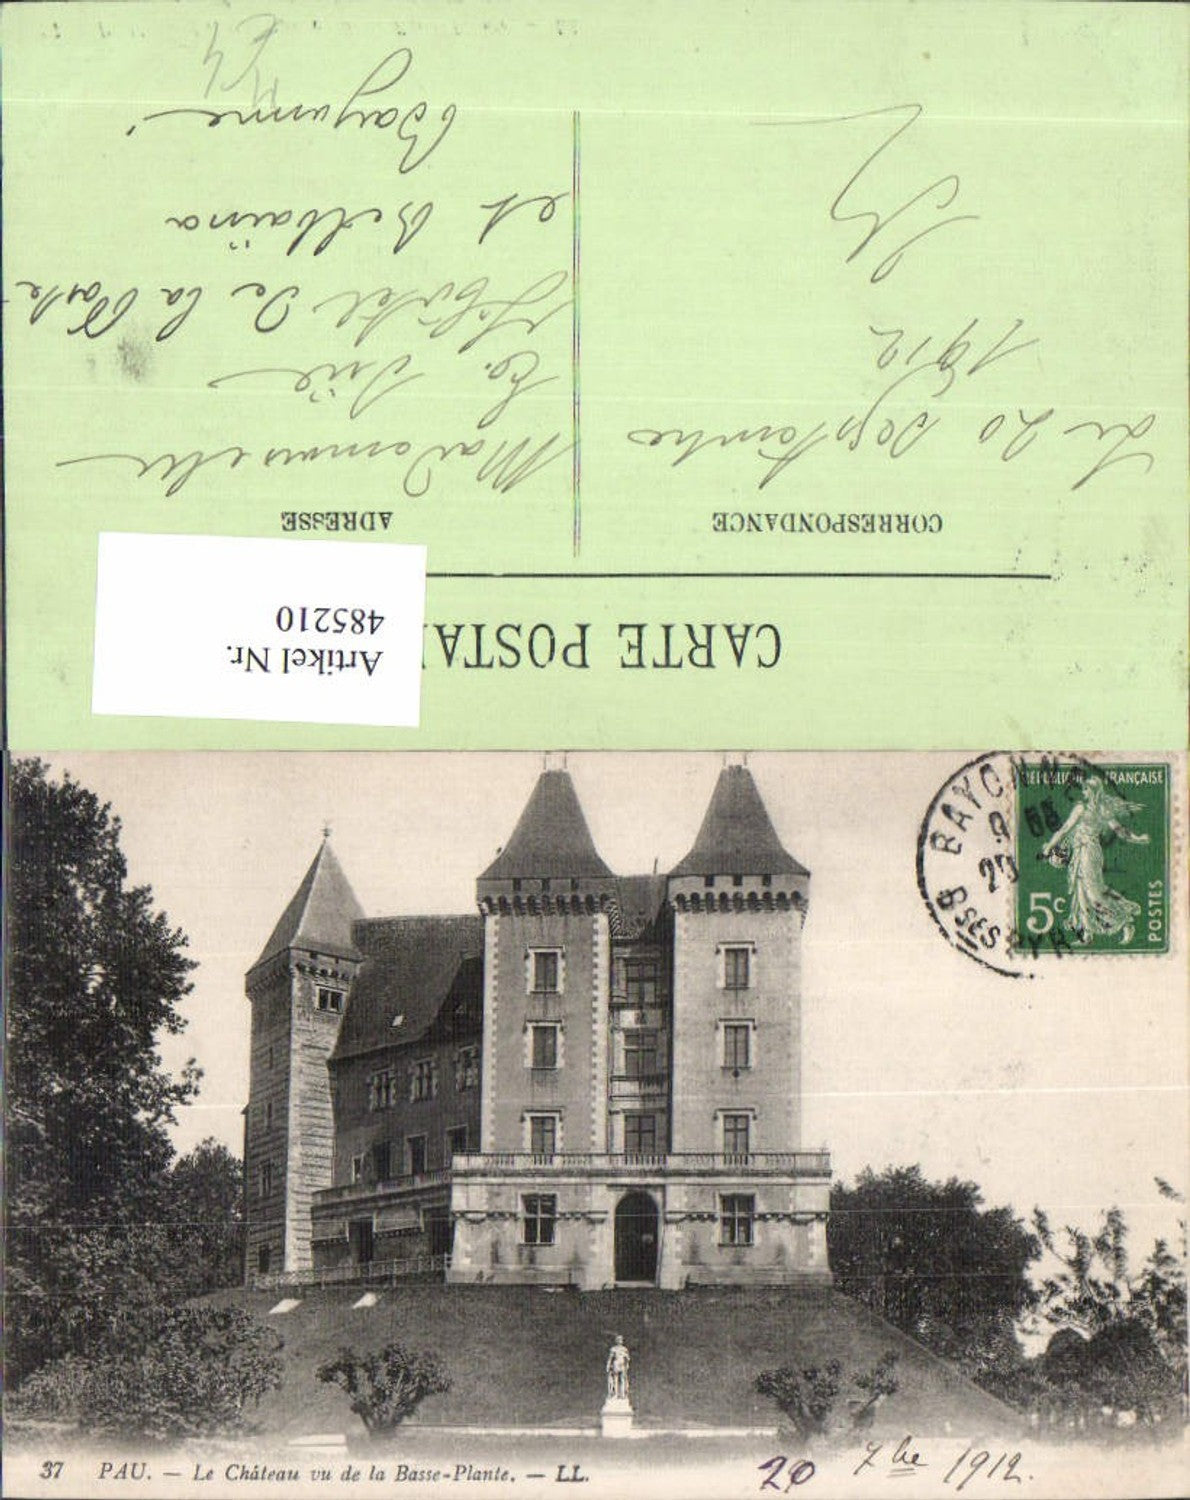 CARTE POSTA
Artikel Nr.
485210
CORRESPONDANCE
ADRESSE
Le 20 Septembre
1912
Mademoiselle
Hôtel de la Poste
et Bilbaïna
Bayonne
RÉPUBLIQUE FRANÇAISE
5c
POSTES
BAYONNE
BSES PYRÉNÉES
37 PAU. — Le Château vu de la Basse-Plante. — LL.
20 7bre 1912.